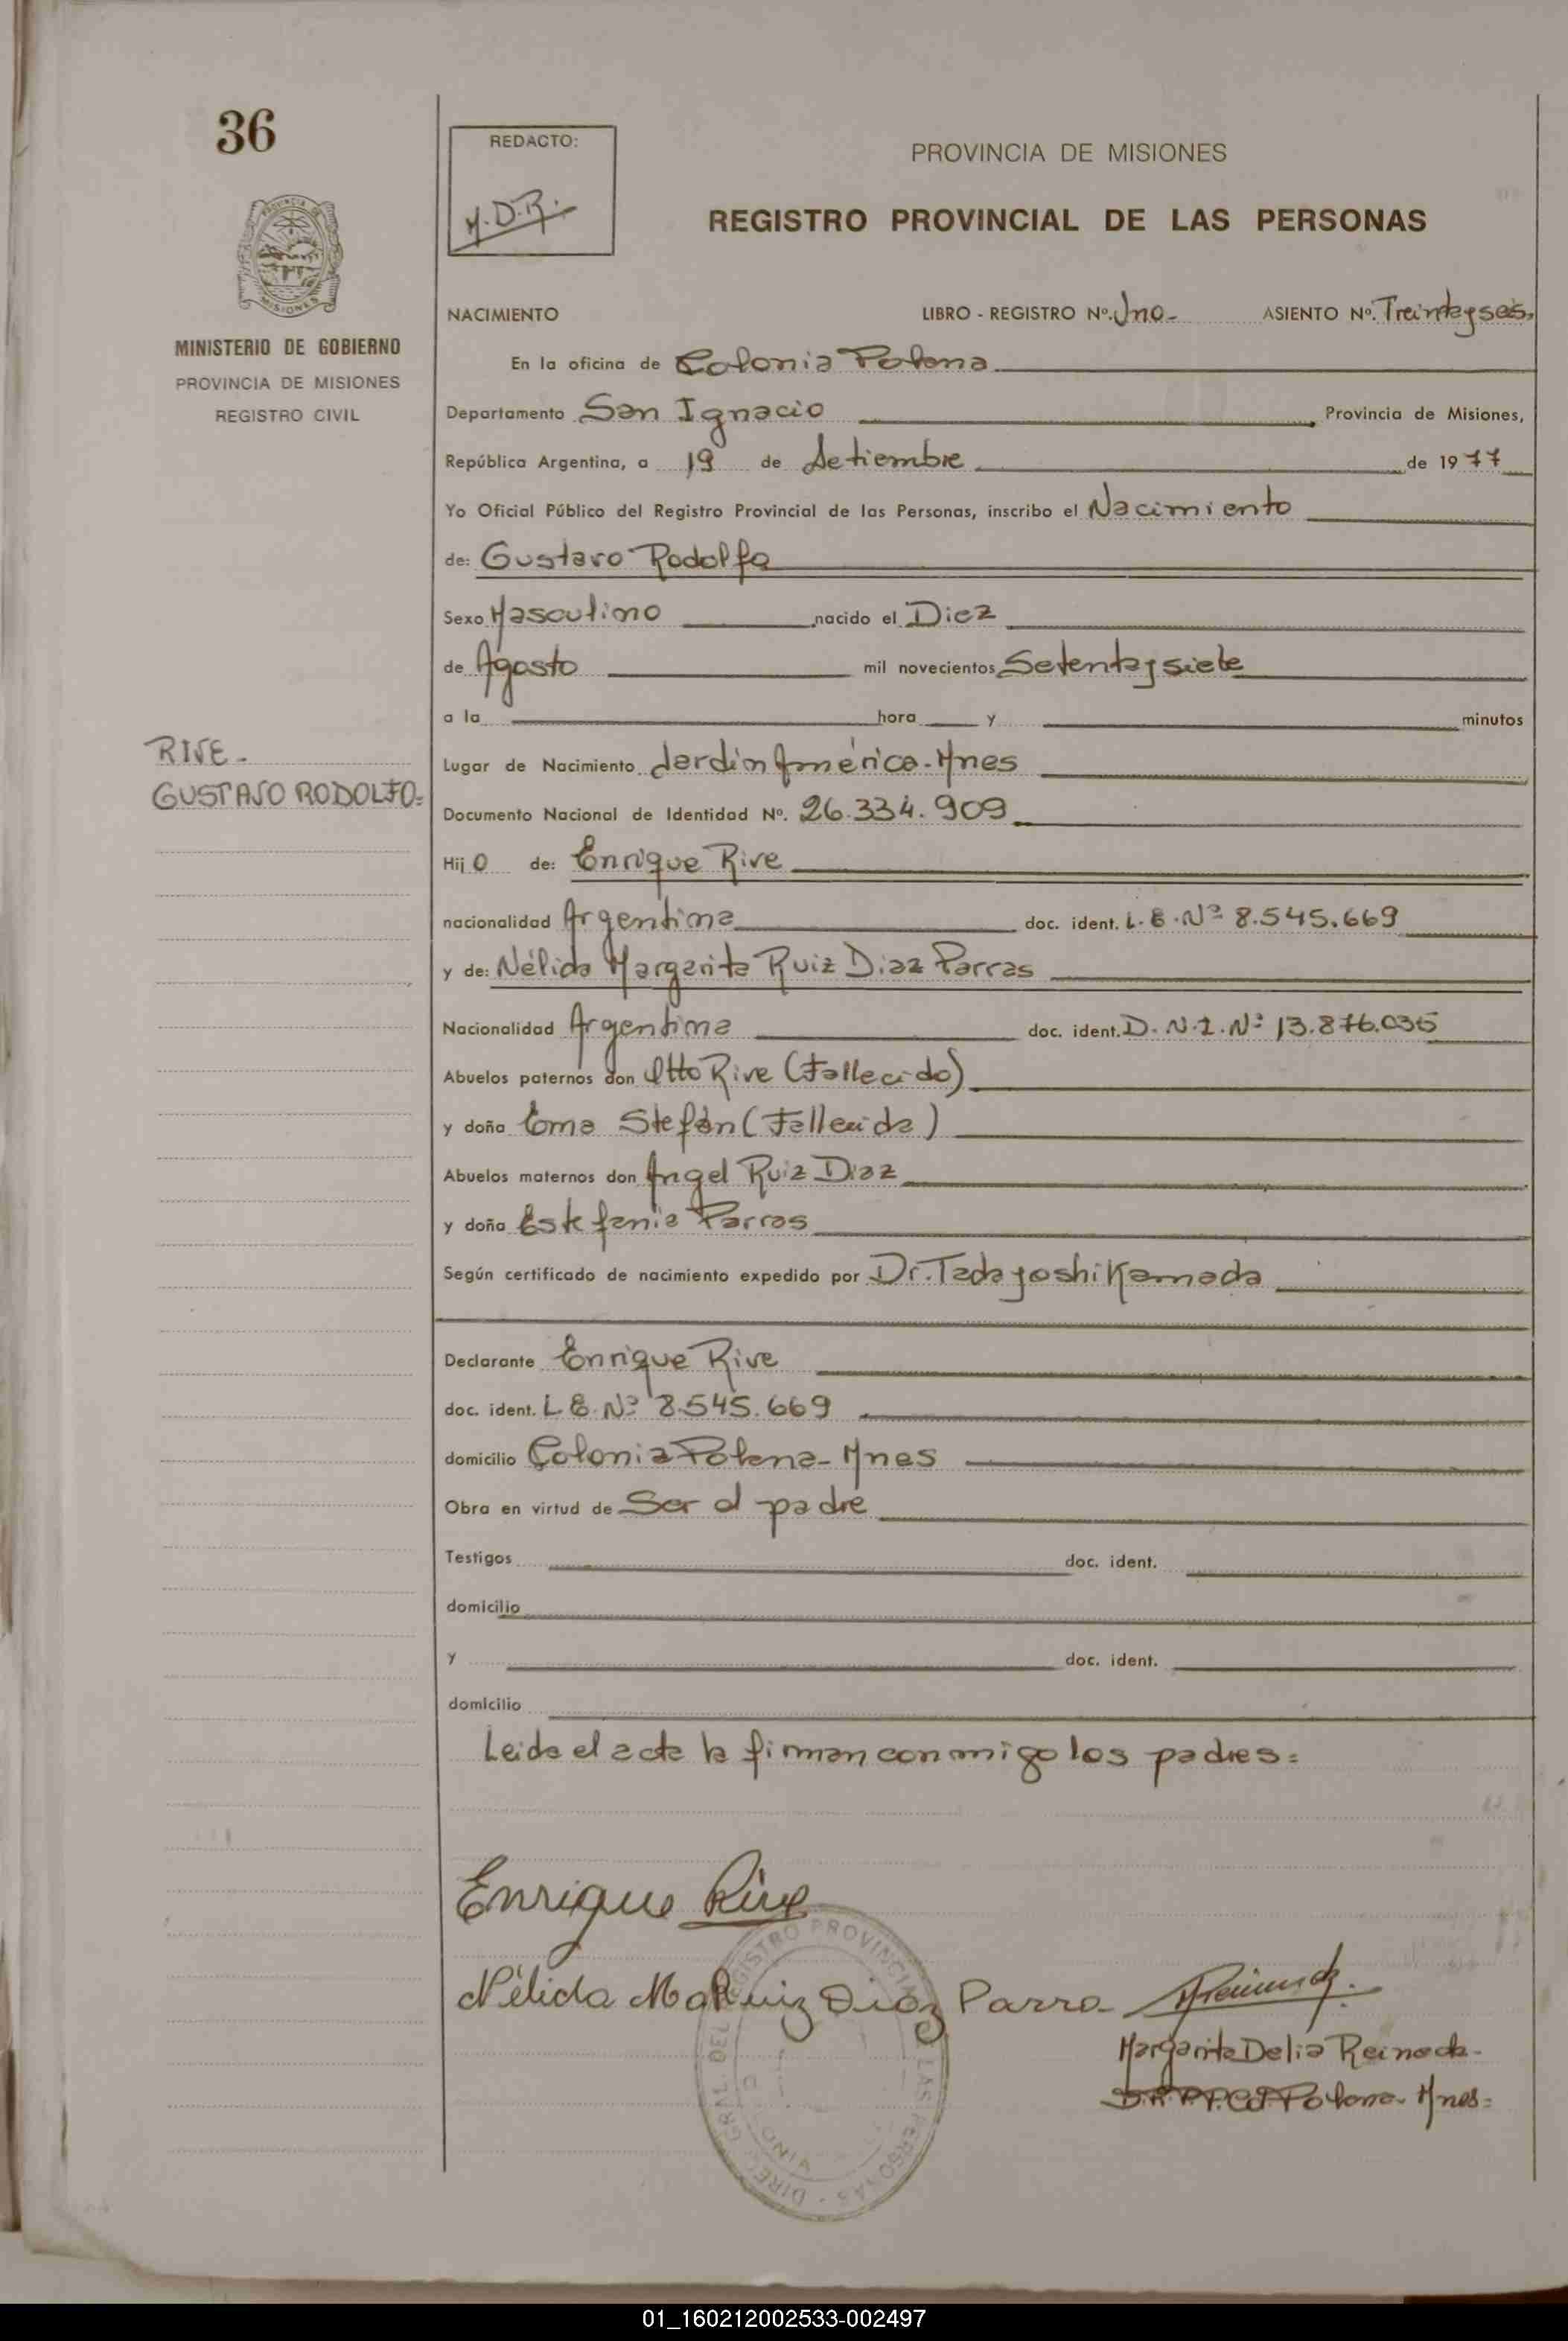 36
REDACTO:
M.D.R.
PROVINCIA DE MISIONES
REGISTRO PROVINCIAL DE LAS PERSONAS
MINISTERIO DE GOBIERNO
PROVINCIA DE MISIONES
REGISTRO CIVIL
NACIMIENTO LIBRO - REGISTRO Nº. Uno- ASIENTO Nº. Treintayseis.
En la oficina de Colonia Polana
Departamento San Ignacio Provincia de Misiones,
República Argentina, a 19 de Setiembre de 1977
Yo Oficial Público del Registro Provincial de las Personas, inscribo el Nacimiento
de: Gustavo Rodolfo
Sexo Masculino nacido el Diez
de Agosto mil novecientos Setentaysiete
a la hora y minutos
RIVE-
GUSTAVO RODOLFO=
Lugar de Nacimiento Jardín América-Mnes
Documento Nacional de Identidad Nº. 26.334.909
Hijo de: Enrique Rive
nacionalidad Argentina doc. ident. L.E.Nº 8.545.669
y de: Nélida Margarita Ruiz Diaz Parras
Nacionalidad Argentina doc. ident. D.N.I.Nº 13.876.035
Abuelos paternos don Otto Rive (Fallecido)
y doña Ema Stefán (Fallecida)
Abuelos maternos don Angel Ruiz Diaz
y doña Estefania Parras
Según certificado de nacimiento expedido por Dr. Tadayoshi Kamada
Declarante Enrique Rive
doc. ident. L.E.Nº 8.545.669
domicilio Colonia Polana-Mnes
Obra en virtud de Ser el padre
Testigos doc. ident.
domicilio
y doc. ident.
domicilio
Leida el acta la firman conmigo los padres=
Enrique Rive
Nélida Ma Ruiz Diaz Parra
Margarita Delia Reinoda-
Polana-Mnes=
DIREC. GRAL. DEL REGISTRO PROVINCIAL DE LAS PERSONAS
01_160212002533-002497